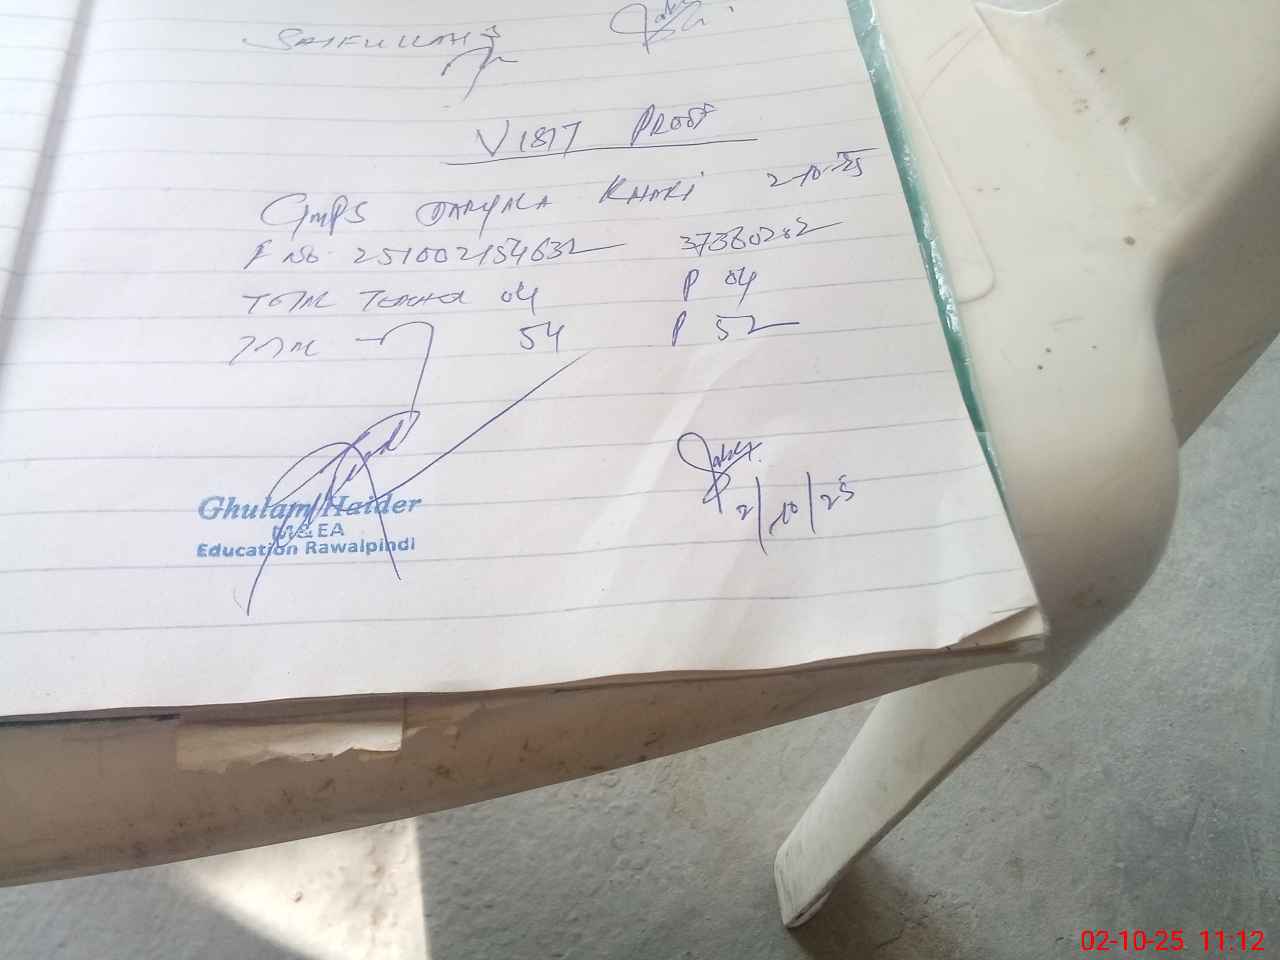 SAIFULLAH
VISIT PROOF
GMPS DARYALA KHAKI 2-10-25
F No. 251002154632 37360282
TOTAL TEACHER 04 P 04
TOTAL 54 P 52
2/10/25
Ghulam Haider
M&EA
Education Rawalpindi
02-10-25 11:12